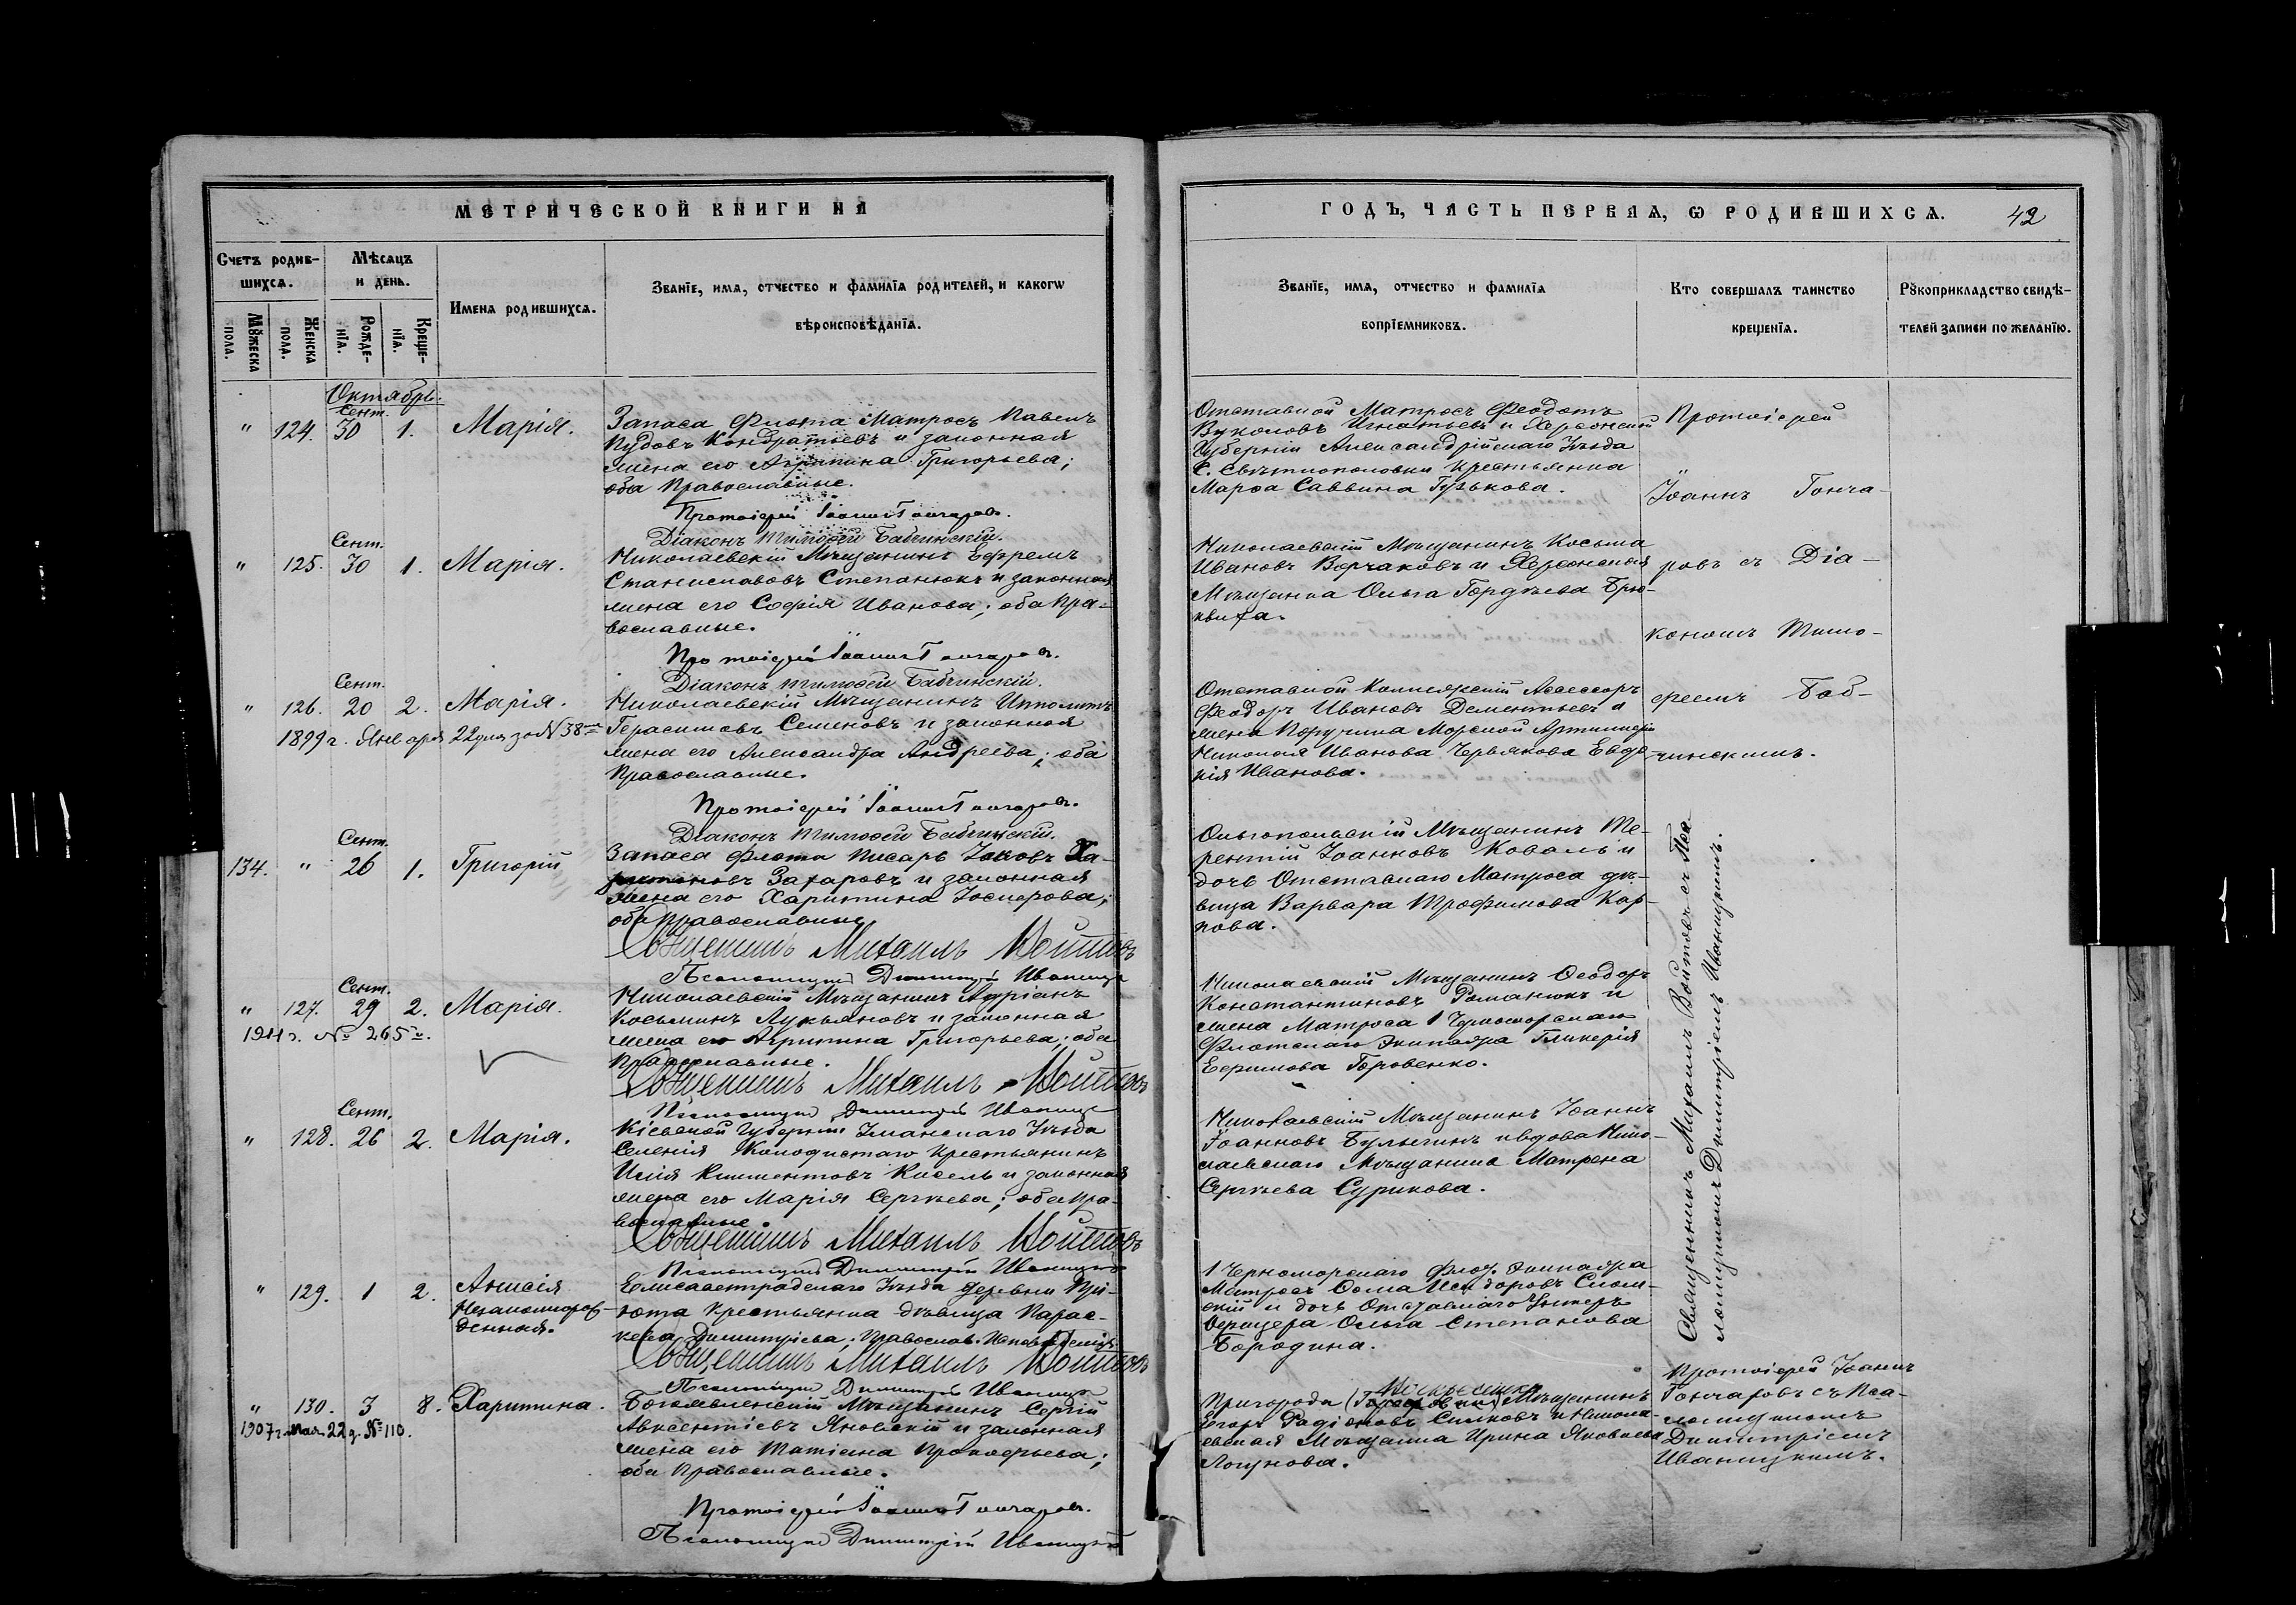 МЕТРИЧЕСКОЙ КНИГИ НА
Счетъ родив-
шихсѧ.
Мѣсѧцъ
и день.
Имена родившихсѧ.
Званїе, имѧ, отчество и фамилїѧ родителей, и какогѡ
вѣроисповѣданїѧ.
Мꙋжеска
пола.
Женска
пола.
Рожде-
нїѧ.
Креще-
нїѧ.
Октябрь.
Сент.
" 124. 30 1. Марія.
Запаса Флота Матросъ Павелъ
Пудовъ Кондратьевъ и законная
жена его Агрипина Григорьева;
оба Православные.
Протоіерей Іоаннъ Гончаровъ.
Діаконъ Тимоѳей Бабчинскій.
Сент.
" 125. 30 1. Марія.
Николаевскій Мѣщанинъ Ефремъ
Станиславовъ Степанюкъ и законная
жена его Софія Иванова; оба Пра-
вославные.
Протоіерей Іоаннъ Гончаровъ.
Діаконъ Тимоѳей Бабчинскій.
Сент.
" 126. 20 2. Марія.
1899 г. Января 22 дня за № 38
Николаевскій Мѣщанинъ Ипполитъ
Герасимовъ Семеновъ и законная
жена его Александра Андреева; оба
Православные.
Протоіерей Іоаннъ Гончаровъ.
Діаконъ Тимоѳей Бабчинскій.
Сент.
134. " 26 1. Григорій
Запаса Флота Писарь Іаковъ Ха-
ритоновъ Захаровъ и законная
жена его Харитина Іосифова;
оба Православные.
Священникъ Михаилъ Войтовъ
Псаломщикъ Димитрій Иваницкій
Сент.
" 127. 29 2. Марія.
1911 г. № 265
Николаевскій Мѣщанинъ Адріанъ
Косьминъ Лукьяновъ и законная
жена его Агрипина Григорьева; оба
Православные.
Священникъ Михаилъ Войтовъ
Псаломщикъ Димитрій Иваницкій
Сент.
" 128. 26 2. Марія.
Кіевской Губерніи Уманскаго Уѣзда
Селенія Колодистаго Крестьянинъ
Илія Климентовъ Кисель и законная
жена его Марія Сергѣева; оба Пра-
вославные.
Священникъ Михаилъ Войтовъ
Псаломщикъ Димитрій Иваницкій
" 129. 1 2. Анисія
Незаконнорож-
денная.
Елисаветградскаго Уѣзда деревни Прі-
юта Крестьянка дѣвица Парас-
кева Димитріева; Православ. Исповѣданія
Священникъ Михаилъ Войтовъ
Псаломщикъ Димитрій Иваницкій
" 130. 3 8. Харитина.
1907 г. мая 22 д. № 110.
Богоявленскій Мѣщанинъ Сергій
Авксентіевъ Яновскій и законная
жена его Татіана Прокофьева;
оба Православные.
Протоіерей Іоаннъ Гончаровъ.
Псаломщикъ Димитрій Иваницкій
ГОДЪ, ЧАСТЬ ПЕРВАѦ, Ѡ РОДИВШИХСѦ. 42
Званїе, имѧ, отчество и фамилїѧ
воспрїемниковъ.
Кто совершалъ таинство
крещенїѧ.
Рꙋкоприкладство свидѣ-
телей записи по желанїю.
Отставной Матросъ Феодотъ
Вуколовъ Игнатьевъ и Херсонской
Губерніи Александрійскаго Уѣзда
С. Свѣтлополовки Крестьянка
Марѳа Саввина Гузькова.
Николаевскій Мѣщанинъ Косьма
Ивановъ Ворчаковъ и Херсонская
Мѣщанка Ольга Гордѣева Брю-
квина.
Отставной Коллежскій Ассессоръ
Феодоръ Ивановъ Дементьевъ и
жена Поручика Морской Артиллеріи
Николая Иванова Червякова Евдо-
кія Иванова.
Протоіерей
Іоаннъ Гонча-
ровъ съ Діа-
кономъ Тимо-
феемъ Баб-
чинскимъ.
Ольгопольскій Мѣщанинъ Те-
рентій Іоанновъ Коваль и
дочь Отставнаго Матроса дѣ-
вица Варвара Трофимова Кар-
пова.
Николаевскій Мѣщанинъ Ѳеодоръ
Константиновъ Романюкъ и
жена Матроса 1 Черноморскаго
Флотскаго Экипажа Гликерія
Ефимова Боровенко.
Николаевскій Мѣщанинъ Іоаннъ
Іоанновъ Булыгинъ и вдова Нико-
лаевскаго Мѣщанина Матрена
Сергѣева Сурикова.
1 Черноморскаго Флот. Экипажа
Матросъ Ѳома Исидоровъ
и дочь Отставнаго Унтеръ
Офицера Ольга Степанова
Бородина.
Священникъ Михаилъ Войтовъ съ Пса-
ломщикомъ Димитріемъ Иваницкимъ.
Воскресенска
Пригорода Мѣщанинъ
Егоръ Радіоновъ Силковъ и Никола-
евская Мѣщанка Ирина Яковлева
Логунова.
Протоіерей Іоаннъ
Гончаровъ съ Пса-
ломщикомъ
Димитріемъ
Иваницкимъ.